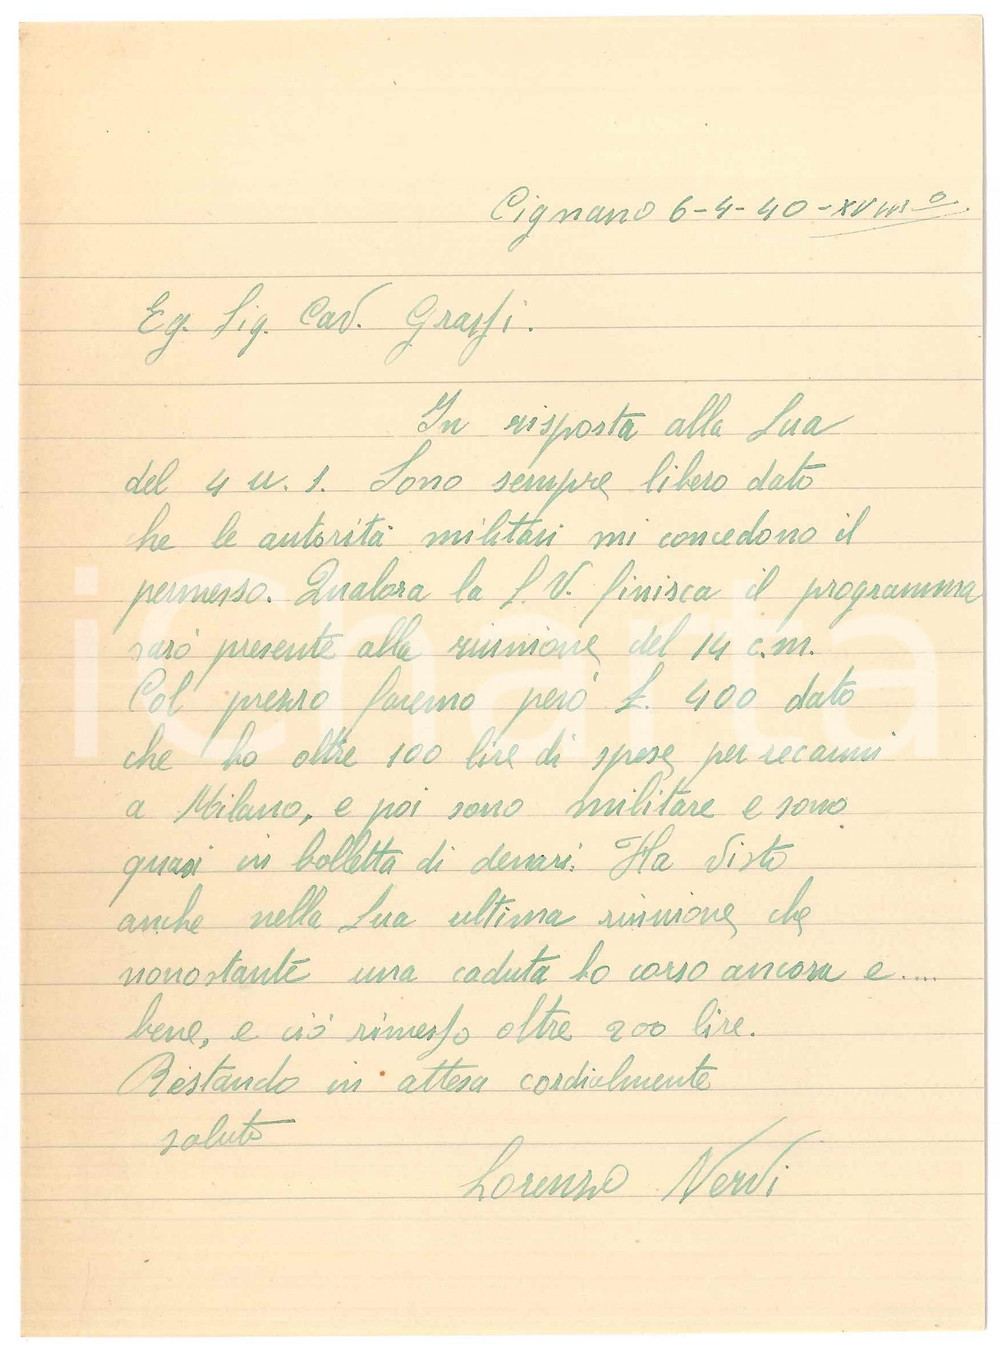 Cignano 6-4-40-XVIIIº
Eg. Sig. Cav. Grassi.
In risposta alla Sua
del 4 u. s. Sono sempre libero dato
che le autorità militari mi concedono il
permesso. Qualora la S. V. finisca il programma
sarò presente alla riunione del 14 c.m.
Col prezzo faremo però £. 400 dato
che ho oltre 100 lire di spese per recarmi
a Milano, e poi sono militare e sono
quasi in bolletta di denari. Ha visto
anche nella Sua ultima riunione che
nonostante una caduta ho corso ancora e....
bene, e ciò rimesso oltre 200 lire.
Restando in attesa cordialmente
saluto
Lorenzo Nervi
iCharta